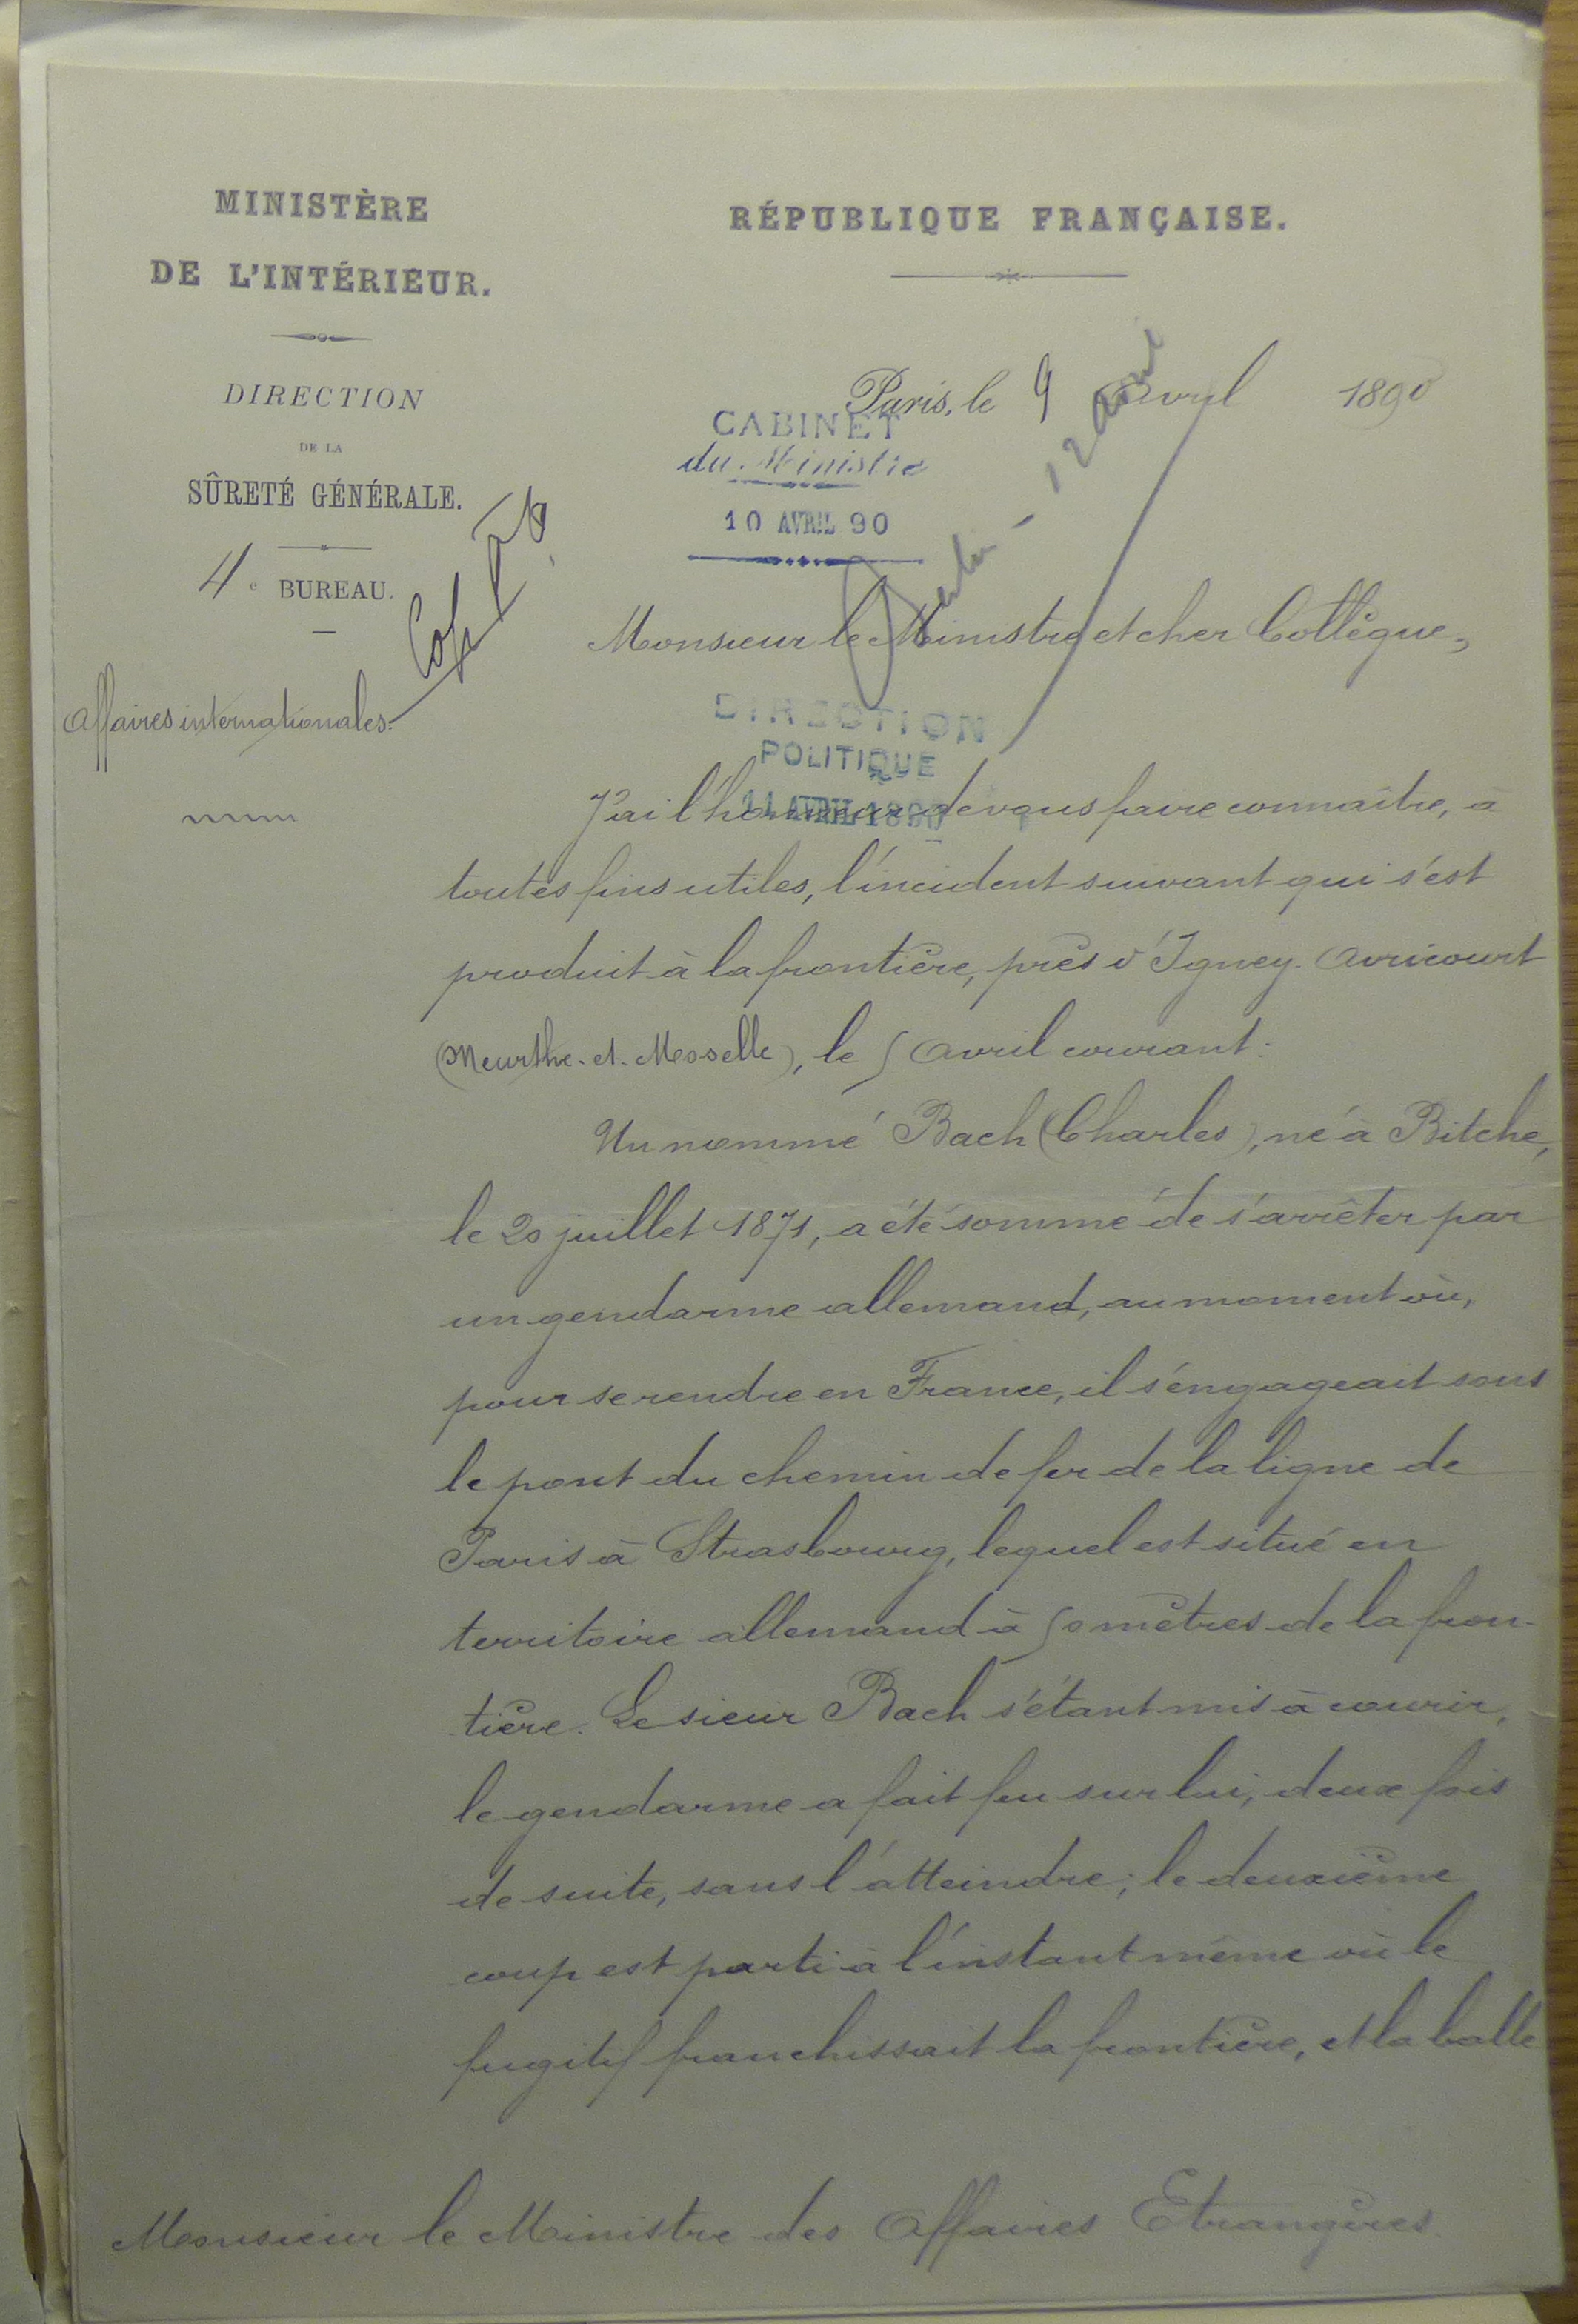 MINISTÈRE
DE L'INTÉRIEUR.
DIRECTION
DE LA
SÛRETÉ GÉNÉRALE.
4e BUREAU.
Affaires internationales.
RÉPUBLIQUE FRANÇAISE.
Paris, le 9 Avril 1890
CABINET
du Ministre
10 AVRIL 90
Berlin - 12 avril
Monsieur le Ministre et cher Collègue,
DIRECTION
POLITIQUE
11 AVRIL 1890
J'ai l'honneur de vous faire connaître, à
toutes fins utiles, l'incident suivant qui s'est
produit à la frontière, près d'Igney-Avricourt
(Meurthe-et-Moselle), le 5 Avril courant:
Un nommé Bach (Charles), né à Bitche,
le 20 juillet 1871, a été sommé de s'arrêter par
un gendarme allemand, au moment où,
pour se rendre en France, il s'engageait sous
le pont du chemin de fer de la ligne de
Paris à Strasbourg, lequel est situé en
territoire allemand à 50 mètres de la fron-
tière. Le sieur Bach s'étant mis à courir,
le gendarme a fait feu sur lui, deux fois
de suite, sans l'atteindre; le deuxième
coup est parti à l'instant même où le
fugitif franchissait la frontière, et la balle
Monsieur le Ministre des Affaires Etrangères